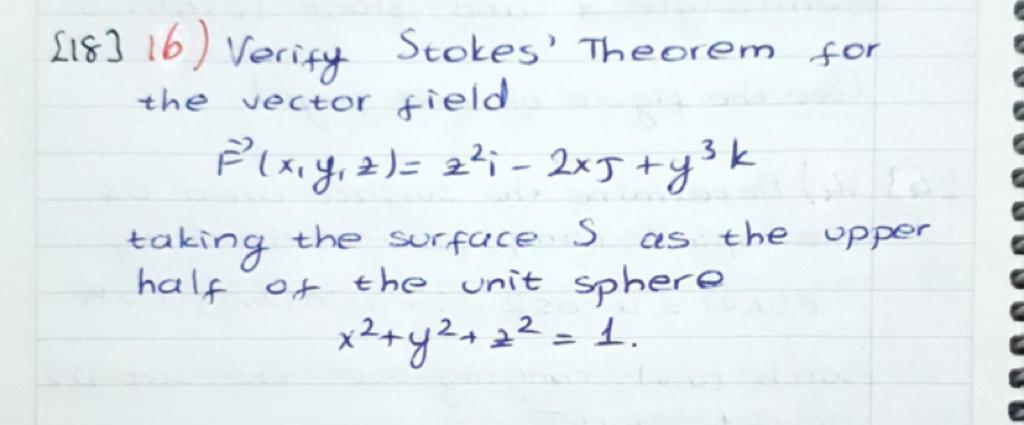 [18] 16) Verify Stokes' Theorem for
the vector field
F⃗(x,y,z)= z²i - 2xJ + y³k
taking the surface S as the upper
half of the unit sphere
x²+y²+z² = 1.